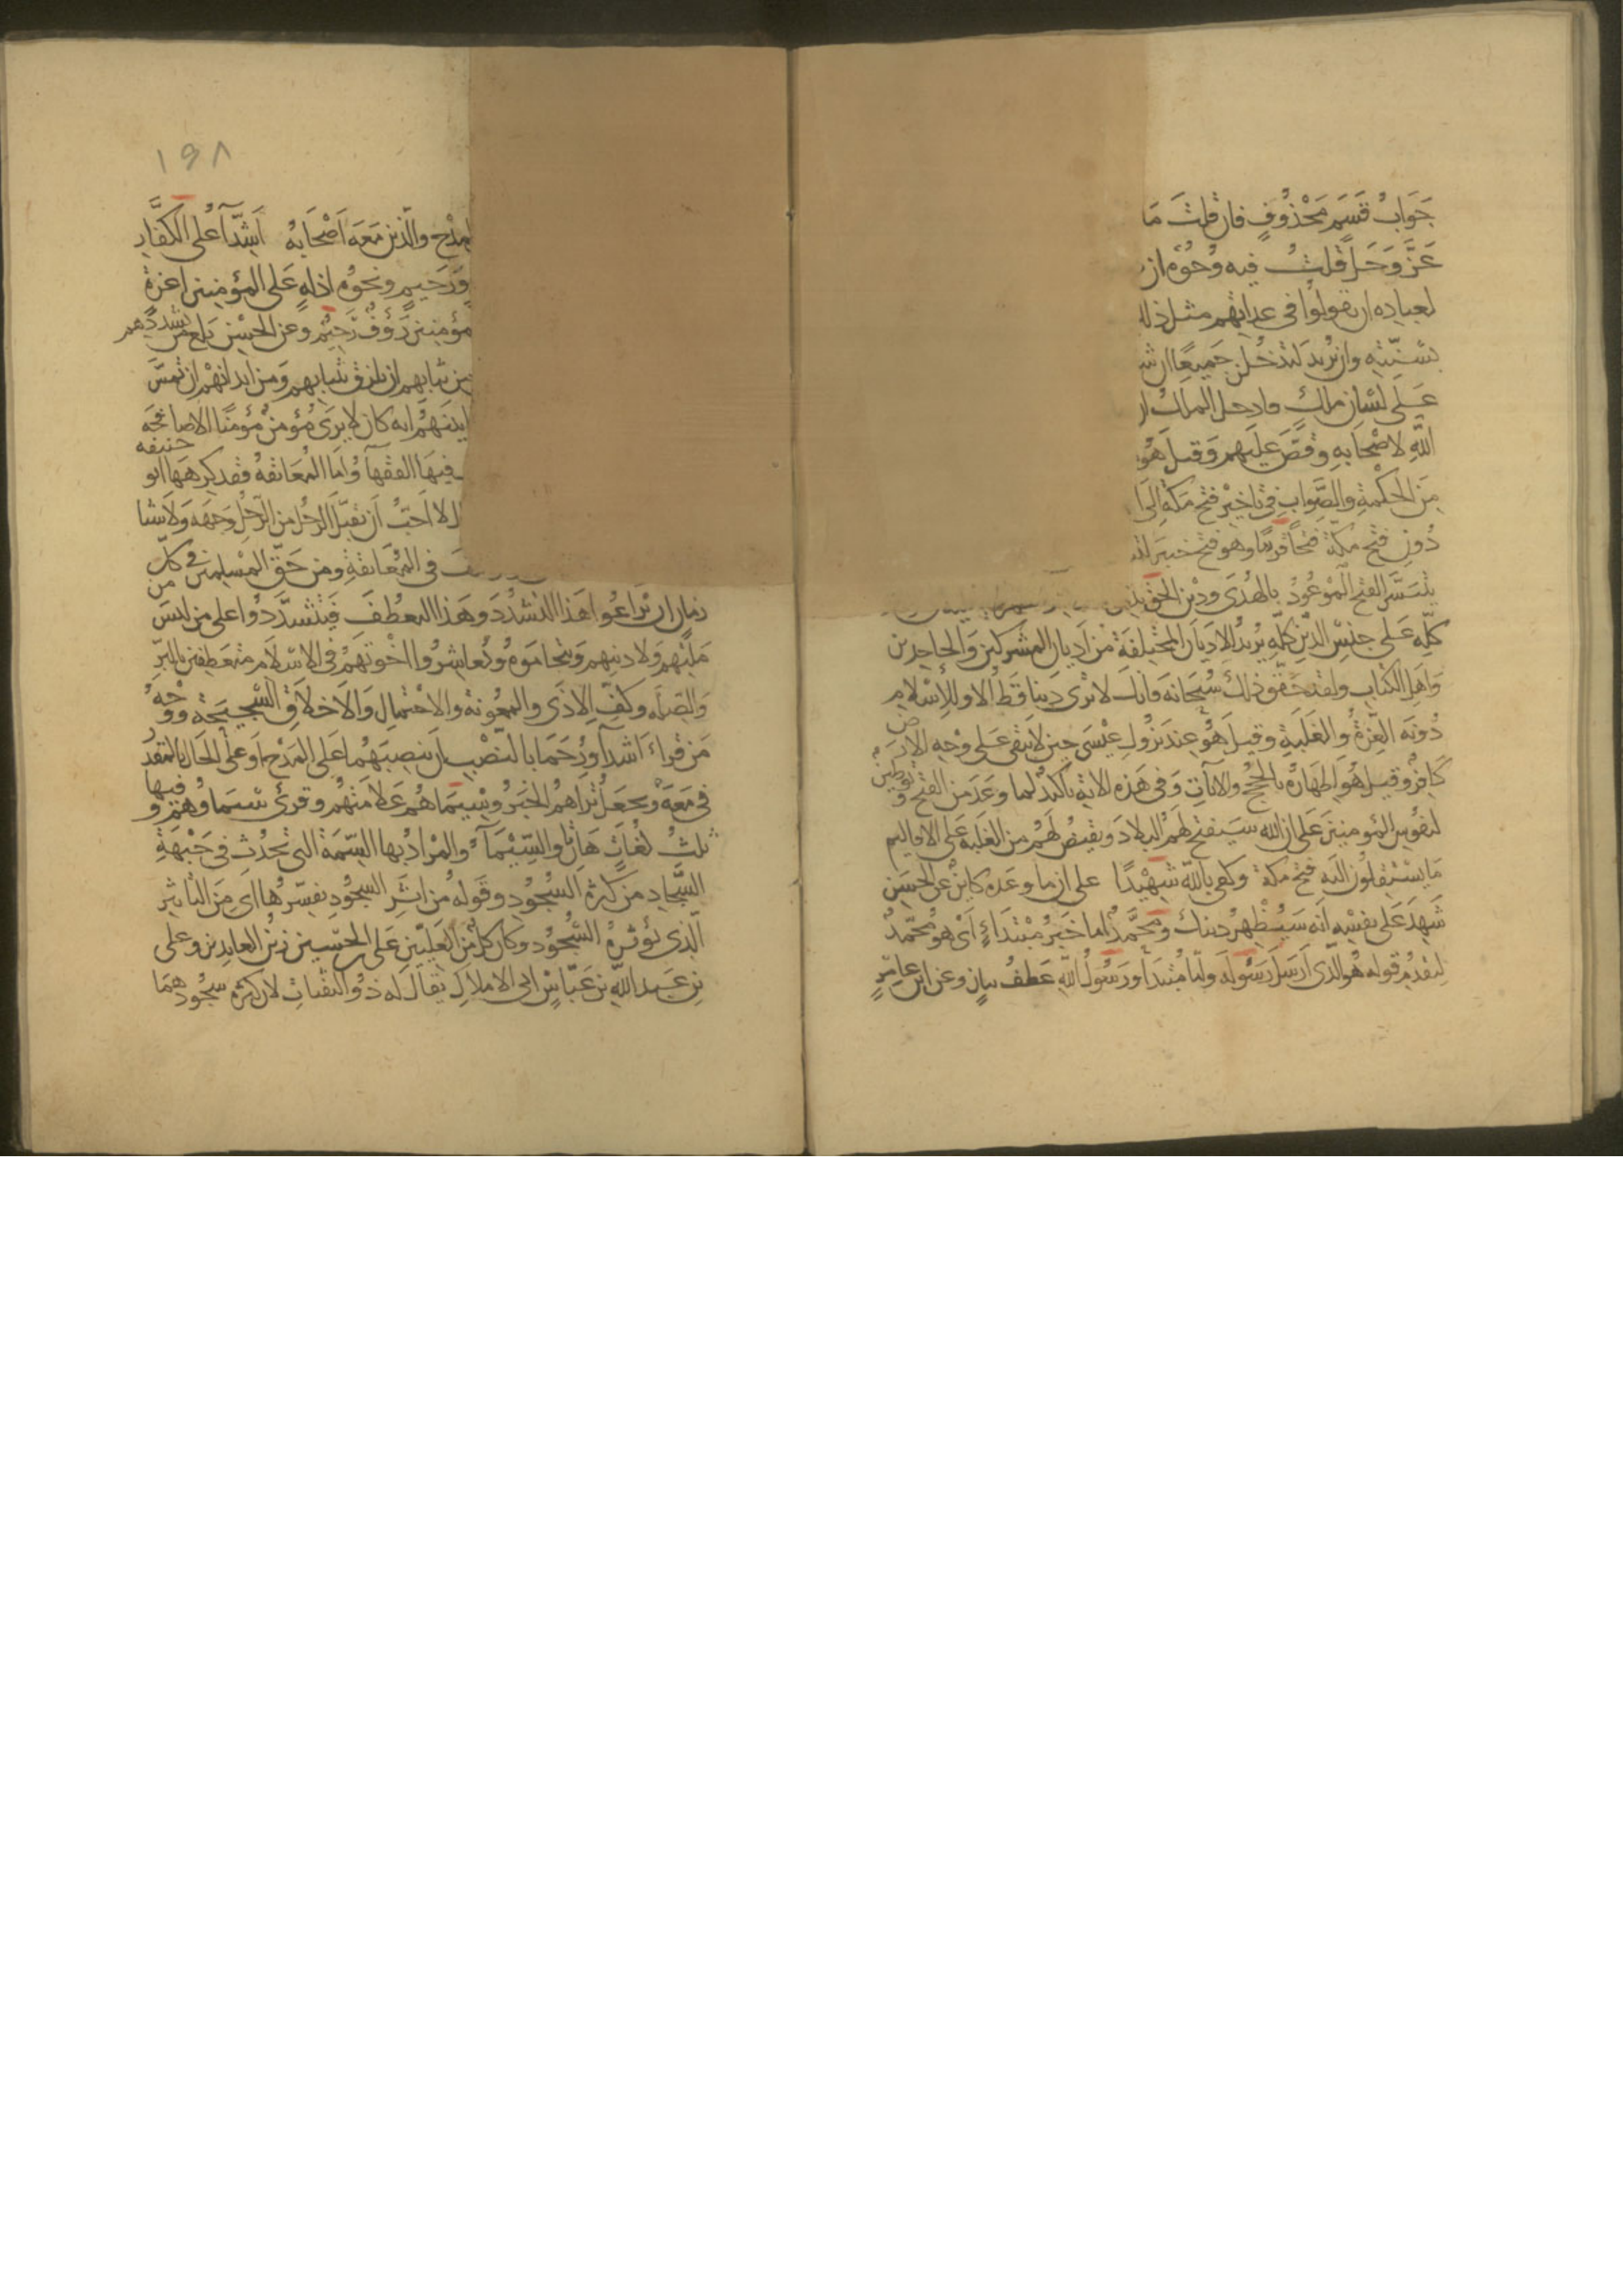 جَوابُ قسَمٍ مَحْذُوفٍ فان قلتَ مَا
عَزَّ وَجَلَّ قلتُ فيه وُجُوْه ان
لعباده ان يقولوا في عداتهم مثل ذلك
بسُنّتِه وان يُريد لتدخُلنّ جَميعًا ان
عَلى لسَان ملكٍ فادخل الملك
اللهِ لاصْحَابهِ وقصَّ عليهم وَقيل هُو
مِن الحكْمةِ والصَّواب في تاخيْر فتح مكة الى
دُونِ فتح مكّة فتحًا قريبًا وهو فتح خيبَر
يتيَسَّر الفتح الموعُودُ بالهُدَى ودين الحق
كلّه عَلى جنْسِ الدّين كلّه يُريدُ الاديَان المختلفَة مْن اديان المشركين وَالجاحدين
وَاهل الكتاب ولقد حَقّق ذلك سُبحَانه فانك لا ترى دينا قط الا وللأسْلامِ
دُونَه العِزّةُ والغَلَبة وقيل هُو عند نزُولِ عيْسَى حين لا يبقى عَلى وَجهِ الارض
كافرٌ وقيل هُو اظهارُه بالحُجج والايات وفى هَذه الاية تاكيدٌ لما وعَدَ من الفتح وتوطين
لنفُوسِ المؤمنينَ على ان الله سَيفتح لهمُ البلادَ ويقيّضُ لَهُم من الغَلبة عَلى الاقاليم
مَا يسْتقلُون اليه فتح مكة وكفى باللهِ شَهيْدًا على ان ما وعَده كاينٌ عن الحسَن
شَهِدَ عَلى نفسِه انّه سَيُظْهِرُ دينك ومحَمَّدٌ اما خَبرُ مبْتَداءٍ اَىْ هو محمّدٌ
لتقدُّم قوله هُو الذّى ارسَل رسُوله وامّا مُبتَدأ ورَسُولُ اللهِ عَطفُ بيانٍ وعن ابن عامِرٍ
١٩٨
المدْح والّذين مَعَه اَصْحَابهُ اَشِدّآءُ على الكفّارِ
ورَحيمٍ ونحوُه اذلةٍ عَلى المؤمنين اعزةٍ
مؤمنين رَؤُفٌ رّحيْم وعن الحسْن بلغ من تشددهم
من ثيابهم ان تلزق بثيابهم وَمن ابدانهم ان تمسَّ
ابدَانهُم انه كان لا يرَى مُؤمنٌ مؤمنًا الا صافحَه
فيهَا الفقهآءُ وامّا المُعَانقةُ فقد كرهَها ابو حنيفه
لا احبُّ اَن يقبّل الرجُل من الرّجُل وَجهَه وَلا شيا
في المُعَانقةِ ومن حَقّ المسْلمين في كلّ
زمان ان يُراعُوا هَذا التشدّدَ وهَذا التعَطُّفَ فيتشَدّدوُا على من ليسَ من
ملّتِهم ولا دينِهم وَيتحَامَوهُ ويُعاشِرُوا اخْوتهُم فى الاسْلام متعَطّفين بالبِرِّ
والصّلَه وكفّ الاذَى والمعُونة والاحْتمالِ وَالاخلاقِ السَّجيحة ووَجْهُ
مَن قراءَ اشداء ورُحَمَاء بالنّصْب اَن ينصِبَهُما عَلى المَدْح اَو على الحَال بالمقدر
في مَعَهُ ويجعَل تَراهُم الخبرُ وسِيمَاهُم عَلامَتهُم وقرئ سيمياؤُهُم و فيها
ثلثُ لغَاتٍ هَاتان والسِّيْمَآءُ والمُرادُ بها السِّمَة التى تحدُث فى جَبْهَةِ
السَّجاد من كثرةِ السُجُودِ وقَوله مْن اثَرِ السجُودِ يفسّرُها اَى من التاثيرِ
الّذى يُؤثّرهُ السُّجُود وكان كلٌّ مْن العَليَّين عَلى بن الحسْين زينُ العابدين وعلى
بن عَبد اللهِ بن عَبّاسٍ ابى الاملاكِ يُقالَ له ذُو الثّفناتِ لان كثرة سجُودهِمَا